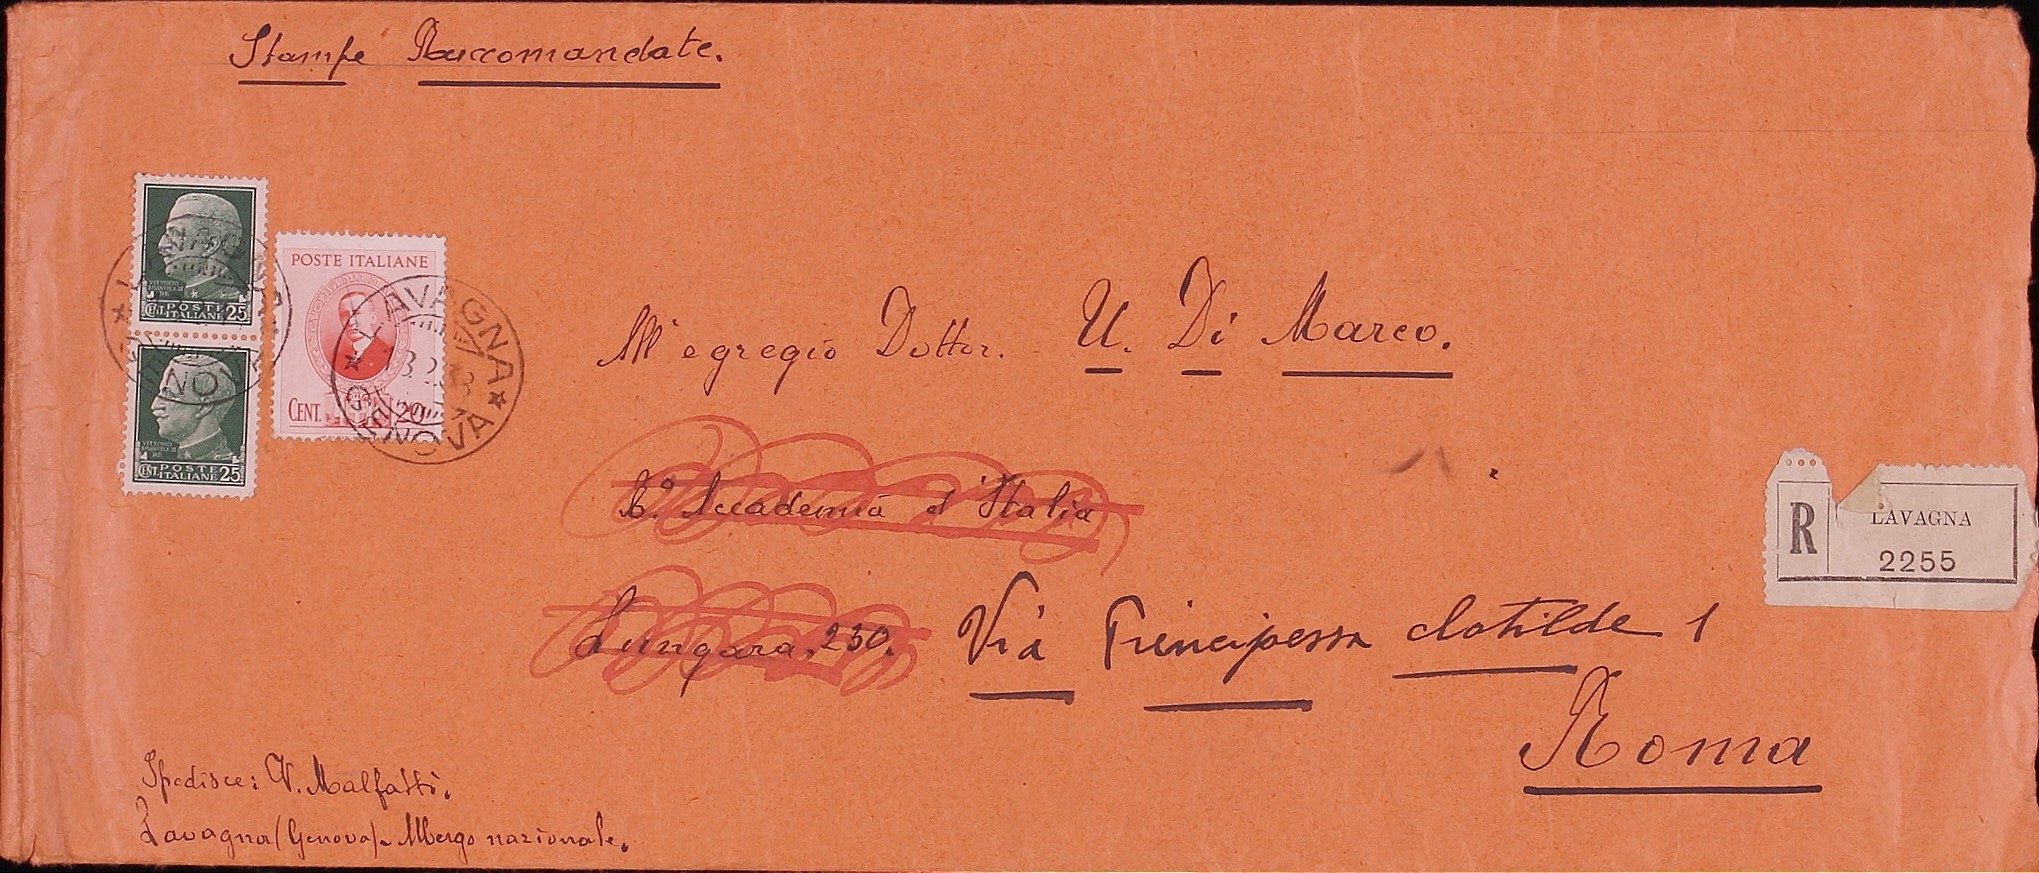 Stampe Raccomandate.
VITTORIO
EMANUELE III
RE
CENT. POSTE ITALIANE 25
POSTE ITALIANE
CENT. 20
LAVAGNA
GENOVA
VITTORIO
EMANUELE III
RE
CENT. POSTE ITALIANE 25
All'egregio Dottor. U. Di Marco.
R. Accademia d'Italia
Lungara. 230. Via Principessa Clotilde 1
Roma
R LAVAGNA
2255
Spedisce: V. Malfatti.
Lavagna (Genova) - Albergo nazionale.